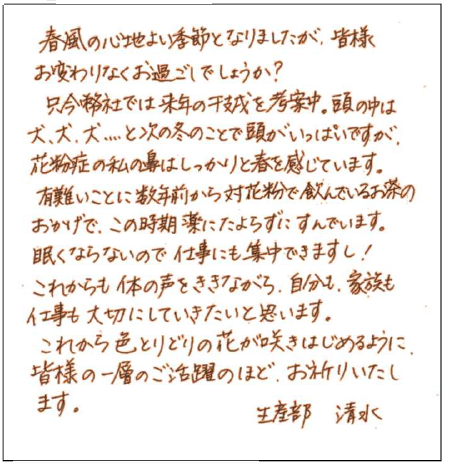 春風の心地よい季節となりましたが、皆様
お変わりなくお過ごしでしょうか？
只今弊社では来年の干支戌を考案中。頭の中は
犬、犬、犬....と次の冬のことで頭がいっぱいですが、
花粉症の私の鼻はしっかりと春を感じています。
有難いことに数年前から対花粉で飲んでいるお茶の
おかげで、この時期薬にたよらずにすんでいます。
眠くならないので仕事にも集中できますし！
これからも体の声をききながら、自分も、家族も
仕事も大切にしていきたいと思います。
これから色とりどりの花が咲きはじめるように、
皆様の一層のご活躍のほど、お祈りいたし
ます。
生産部　清水